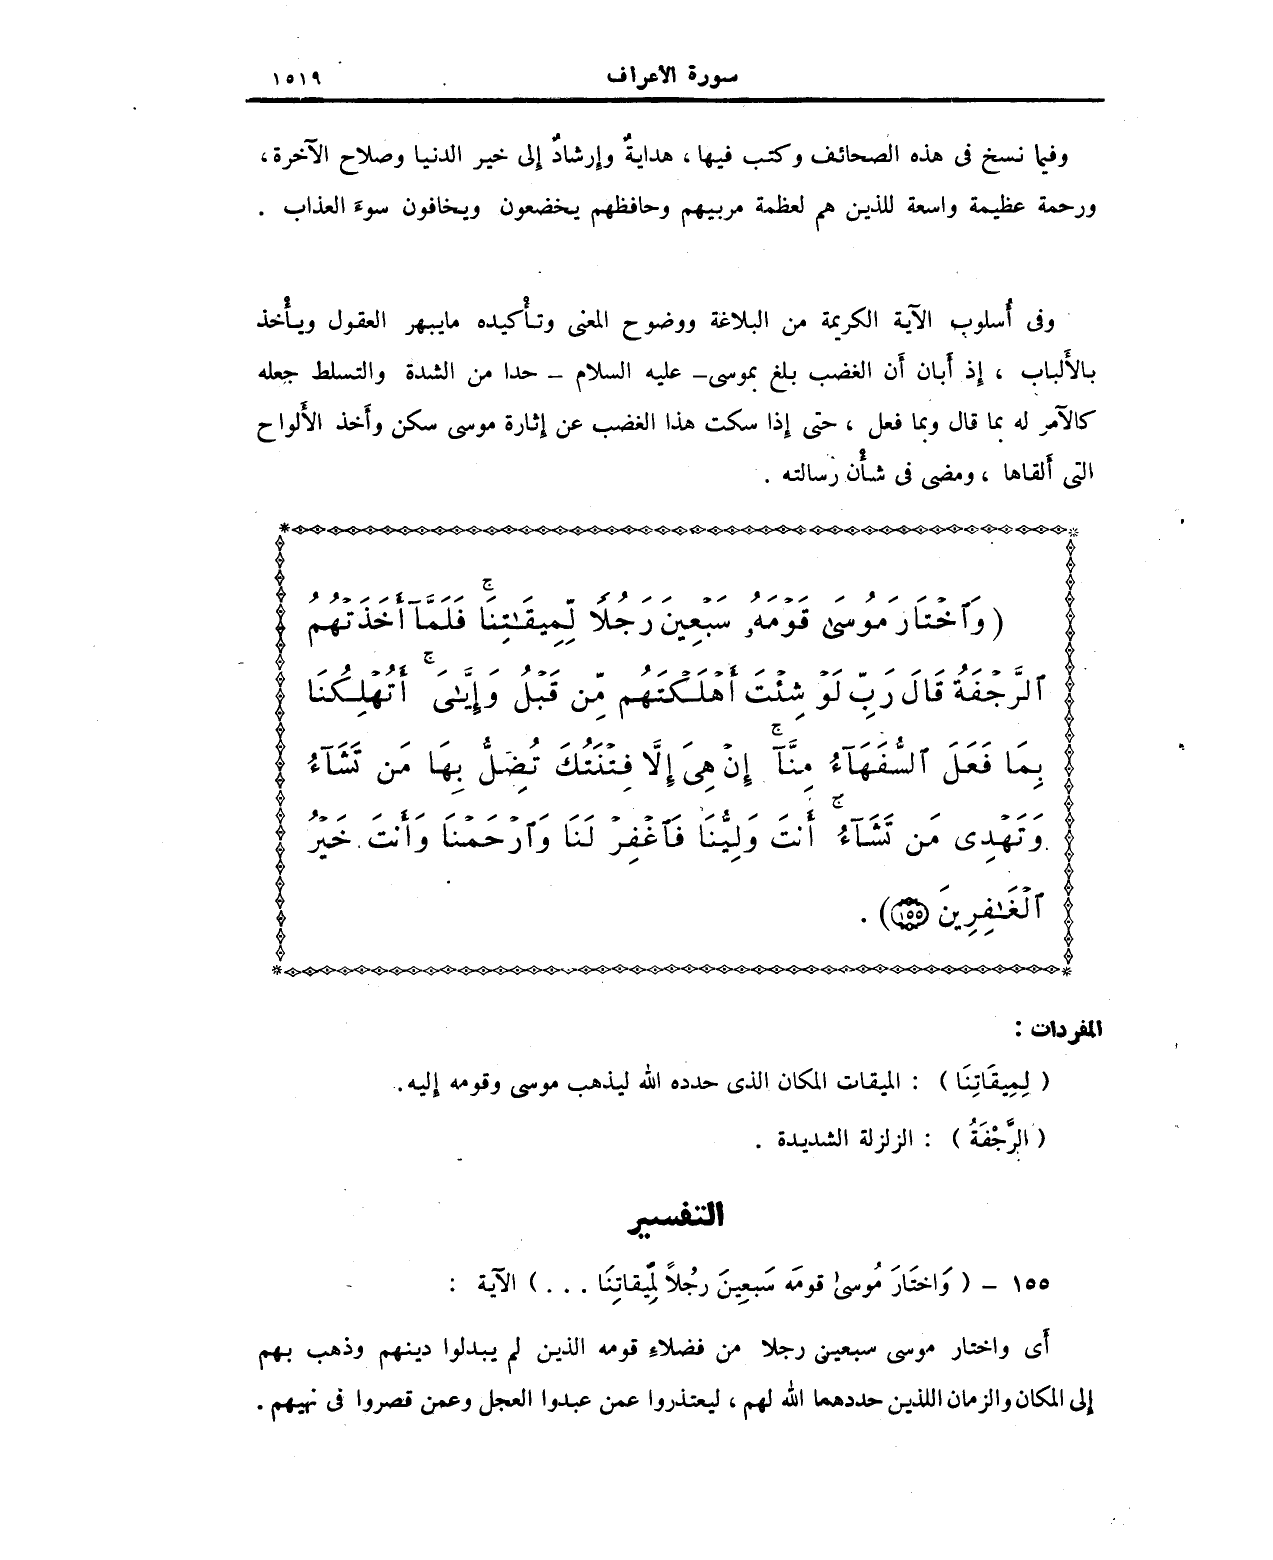 سورة الأعراف ١٥١٩
وفيا نسخ فى هذه الصحائف وكتب فيها ، هدايةٌ وإرشادٌ إلى خير الدنيا وصلاح الآخرة ،
ورحمة عظيمة واسعة للذين هم لعظمة مربيهم وحافظهم يخضعون ويخافون سوءَ العذاب .
وفى أُسلوب الآية الكريمة من البلاغة ووضوح المعنى وتأْكيده مايبهر العقول ويأْخذ
بالأَلباب ، إذ أَبان أن الغضب بلغ بموسى – عليه السلام – حدا من الشدة والتسلط جعله
كالآمر له بما قال وبما فعل ، حتى إذا سكت هذا الغضب عن إثارة موسى سكن وأَخذ الأَلواح
التى أَلقاها ، ومضى فى شأْن رسالته .
(وَٱخْتَارَ مُوسَىٰ قَوْمَهُۥ سَبْعِينَ رَجُلًا لِّمِيقَـٰتِنَا ۖ فَلَمَّآ أَخَذَتْهُمُ
ٱلرَّجْفَةُ قَالَ رَبِّ لَوْ شِئْتَ أَهْلَكْتَهُم مِّن قَبْلُ وَإِيَّـٰىَ ۖ أَتُهْلِكُنَا
بِمَا فَعَلَ ٱلسُّفَهَآءُ مِنَّآ ۖ إِنْ هِىَ إِلَّا فِتْنَتُكَ تُضِلُّ بِهَا مَن تَشَآءُ
وَتَهْدِى مَن تَشَآءُ ۖ أَنتَ وَلِيُّنَا فَٱغْفِرْ لَنَا وَٱرْحَمْنَا وَأَنتَ خَيْرُ
ٱلْغَـٰفِرِينَ ١٥٥) .
المفردات :
( لِمِيقَاتِنَا ) : الميقات المكان الذى حدده الله ليذهب موسى وقومه إليه.
( الرَّجْفَةُ ) : الزلزلة الشديدة .
التفسير
١٥٥ – ( وَاختَارَ مُوسىٰ قومَه سَبعِينَ رجُلاً لِّمِيقاتِنَا . . . ) الآية :
أَى واختار موسى سبعين رجلا من فضلاءِ قومه الذين لم يبدلوا دينهم وذهب بهم
إلى المكان والزمان اللذين حددهما الله لهم ، ليعتذروا عمن عبدوا العجل وعمن قصروا فى نهيهم .